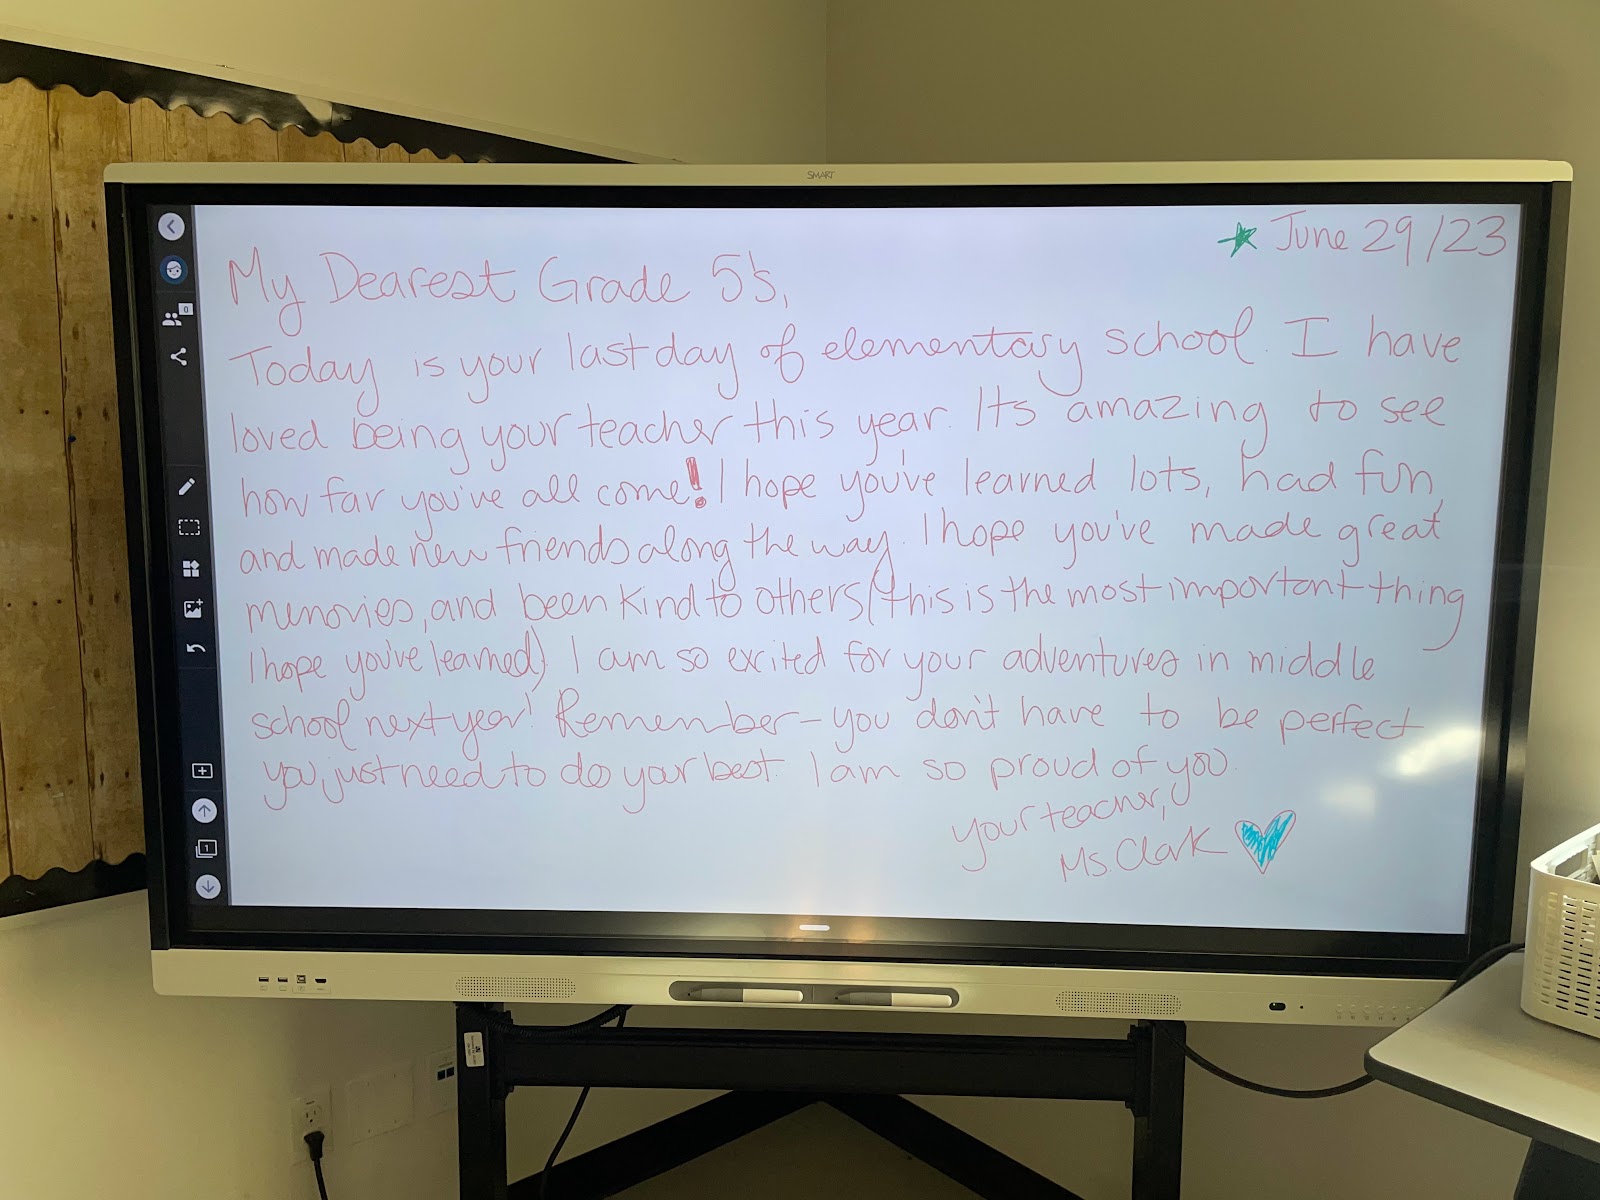 SMART
June 29/23
My Dearest Grade 5's,
Today is your last day of elementary school. I have
loved being your teacher this year. Its amazing to see
how far you've all come! I hope you've learned lots, had fun,
and made new friends along the way. I hope you've made great
memories, and been kind to others (this is the most important thing
I hope you've learned) I am so excited for your adventures in middle
school next year! Remember - you don't have to be perfect
you just need to do your best. I am so proud of you.
your teacher,
Ms. Clark
0
1